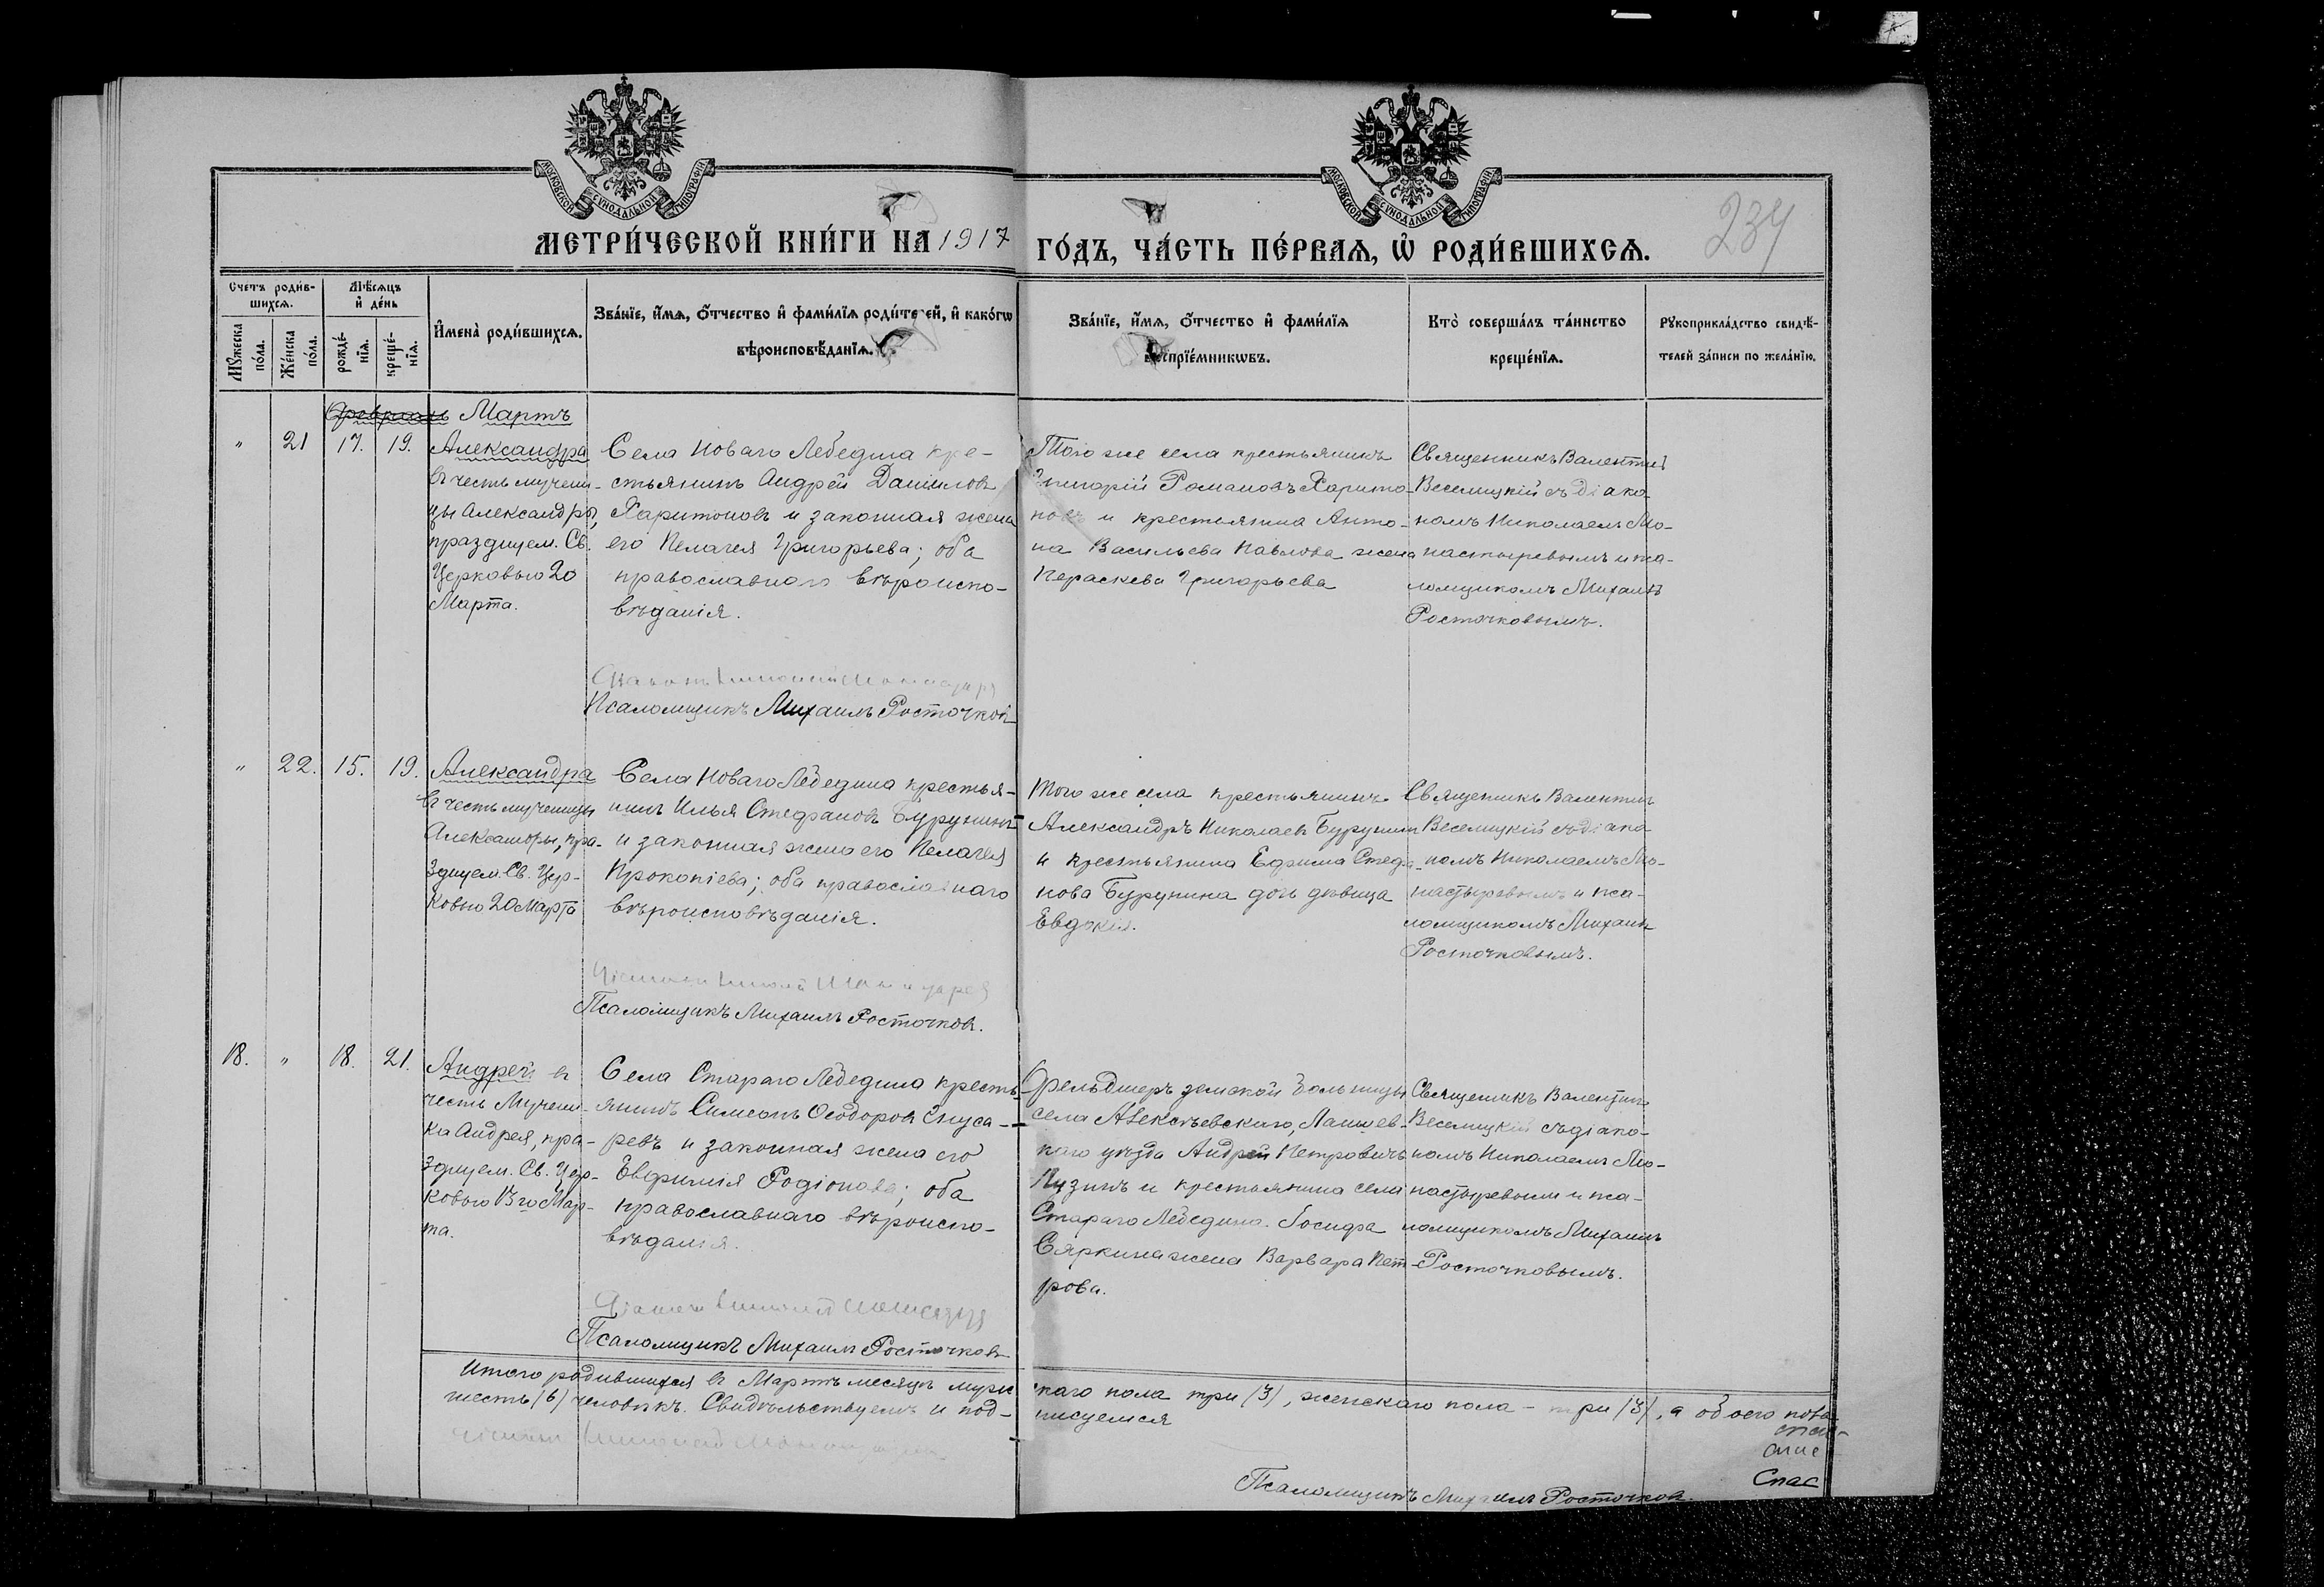 МОСКОВСКОЙ СѴНОДАЛЬНОЙ ТИПОГРАФІИ
МОСКОВСКОЙ СѴНОДАЛЬНОЙ ТИПОГРАФІИ
МЕТРИ́ЧЕСКОЙ КНИ́ГИ НА 1917
ГО́ДЪ, ЧА́СТЬ ПЕ́РВАѦ, Ѡ҆ РОДИ́ВШИХСѦ.
234
Счетъ роди́в-
шихсѧ.
Мѣ́сѧцъ
и҆ де́нь
Мꙋ́жеска
по́ла.
Же́нска
по́ла.
рожде́-
нїѧ.
креще́-
нїѧ.
И҆мена̀ роди́вшихсѧ.
Зва́нїе, и҆́мѧ, ѻ҆́тчество и҆ фами́лїѧ роди́телей, и҆ како́гѡ
вѣроисповѣ́данїѧ.
Зва́нїе, и҆́мѧ, ѻ҆́тчество и҆ фами́лїѧ
воспрїе́мникѡвъ.
Кто̀ соверша́лъ та́инство
креще́нїѧ.
Рꙋкоприкла́дство свидѣ́-
телей за́писи по жела́нїю.
Февраль Мартъ
" 21 17. 19.
Александра
въ честь мучени-
цы Александры,
празднуем. Св.
Церковью 20
Марта.
Села Новаго Лебедина кре-
стьянинъ Андрей Даниловъ
Харитоновъ и законная жена
его Пелагея Григорьева; оба
православнаго вѣроиспо-
вѣданія.
Псаломщикъ Михаилъ Росточковъ
Того же села крестьянинъ
Григорій Романовъ Харито-
новъ и крестьянина Анто-
на Васильева Павлова жена
Пераскева Григорьева
Священникъ Валентинъ
Веселицкій съ діако-
номъ Николаемъ Мо-
настыревымъ и пса-
ломщикомъ Михаил.
Росточковымъ.
" 22. 15. 19.
Александра
въ честь мученицы
Александры, пра-
зднуем. Св. Цер-
ковью 20 Марта
Села Новаго Лебедина крестья-
нинъ Илья Стефановъ Бурунинъ
и законная жена его Пелагея
Прокопіева; оба православнаго
вѣроисповѣданія.
Псаломщикъ Михаилъ Росточков.
Того же села крестьянинъ
Александръ Николаев Бурунин
и крестьянина Ефима Стефа-
нова Бурунина дочь дѣвица
Евдокія.
Священникъ Валентин
Веселицкій съ діако
номъ Николаемъ Мо-
настыревымъ и пса-
ломщикомъ Михаил
Росточковымъ.
18. " 18. 21.
Андрей въ
честь Мучени-
ка Андрея, пра-
зднуем. Св. Цер-
ковью Мар-
та.
Села Стараго Лебедина кресть-
янинъ Симеонъ Ѳеодоров
ревъ и законная жена его
Евфимія Родіонова; оба
православнаго вѣроиспо-
вѣданія.
Псаломщикъ Михаилъ Росточковъ
Фельдшеръ земской больницы
села Алексѣевскаго, Лаишев-
каго уѣзда Андрей Петровичъ
Пузинъ и крестьянина села
Стараго Лебедина Іосифа
Сяркина жена Варвара Пет-
рова.
Священникъ Валентинъ
Веселицкій съ діако-
номъ Николаемъ Мо-
настыревым и пса-
ломщикомъ Михаилъ
Росточковымъ.
Итого родившихся въ Мартѣ месяцѣ мужс каго пола три /3/, женскаго пола – три /3/, а обоего пола
шесть /6/ человѣкъ. Свидѣтельствуемъ и под- писуемся
Псаломщикъ Михаилъ Росточков.
Спас